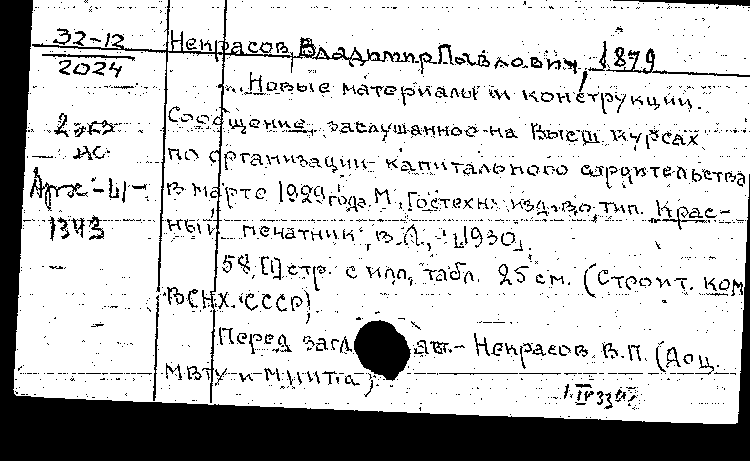 32-12
2024
2 экз
Арх-Ш-
1343
Некрасов, Владимир Павлович, 1879
... Новые материалы и конструкции.
Сообщение, заслушанное на Высш. курсах
по организации капитального строительства
в марте 1929 года. М., Гостехн. изд-во, тип. "Крас-
ный печатник", в Л., [1930].
58, [1] стр. с илл., табл. 25 см. (Строит. ком.
ВСНХ. СССР)
Перед загл. авт. - Некрасов В.П. (Доц.
МВТУ и МИИТ'а)